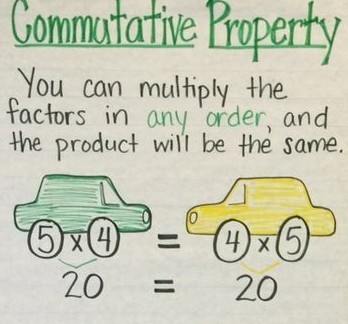 Commutative Property
You can multiply the
factors in any order, and
the product will be the same.
5 x 4 = 4 x 5
20 = 20